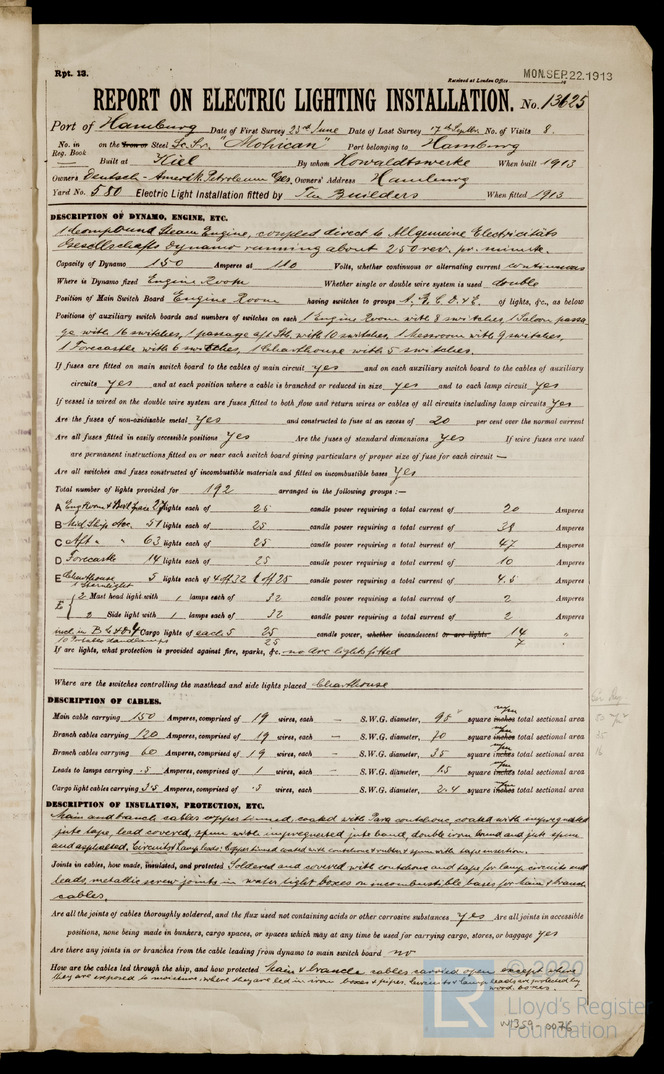 Rpt. 13.
Received at London Office MON. SEP. 22. 1913
REPORT ON ELECTRIC LIGHTING INSTALLATION. No. 13625
Port of Hamburg Date of First Survey 23rd June Date of Last Survey 17th Septbr No. of Visits 8.
No. in Reg. Book on the Iron or Steel Sc. Sr. "Mohican" Port belonging to Hamburg
Built at Kiel By whom Howaldtswerke When built 1913
Owners Deutsch-Amerik. Petroleum Ges. Owners' Address Hamburg
Yard No. 580 Electric Light Installation fitted by The Builders When fitted 1913
DESCRIPTION OF DYNAMO, ENGINE, ETC.
1 Compound Steam Engine, coupled direct to Allgemeine Electricitäts
Gesellschafts Dynamo running about 250 rev. pr. minute.
Capacity of Dynamo 150 Amperes at 110 Volts, whether continuous or alternating current continuous
Where is Dynamo fixed Engine Room Whether single or double wire system is used double
Position of Main Switch Board Engine Room having switches to groups A, B, C, D, & E. of lights, &c., as below
Positions of auxiliary switch boards and numbers of switches on each 1 Engine Room with 8 switches, 1 Saloon passa
ge with 16 switches, 1 passage aft with 10 switches, 1 Messroom with 9 switches,
1 Forecastle with 6 switches, 1 Charthouse with 5 switches.
If fuses are fitted on main switch board to the cables of main circuit yes and on each auxiliary switch board to the cables of auxiliary
circuits yes and at each position where a cable is branched or reduced in size yes and to each lamp circuit yes
If vessel is wired on the double wire system are fuses fitted to both flow and return wires or cables of all circuits including lamp circuits yes
Are the fuses of non-oxidizable metal yes and constructed to fuse at an excess of 20 per cent over the normal current
Are all fuses fitted in easily accessible positions yes Are the fuses of standard dimensions yes If wire fuses are used
are permanent instructions fitted on or near each switch board giving particulars of proper size of fuse for each circuit —
Are all switches and fuses constructed of incombustible materials and fitted on incombustible bases yes
Total number of lights provided for 192 arranged in the following groups :—
A Eng Room & Boil. space 27 lights each of 25 candle power requiring a total current of 20 Amperes
B Mid Ship Acc. 51 lights each of 25 candle power requiring a total current of 38 Amperes
C Aft " 63 lights each of 25 candle power requiring a total current of 47 Amperes
D Forecastle 14 lights each of 25 candle power requiring a total current of 10 Amperes
E Charthouse 1 Sternlight 5 lights each of 4 of 32 1 of 25 candle power requiring a total current of 4.5 Amperes
E 2 Mast head light with 1 lamps each of 32 candle power requiring a total current of 2 Amperes
2 Side light with 1 lamps each of 32 candle power requiring a total current of 2 Amperes
incl. in B C & D 4 Cargo lights of each 5 25 candle power, whether incandescent or arc lights 14 "
10 Portables Handlamps 25 7 "
If arc lights, what protection is provided against fire, sparks, &c. no arc lights fitted
Where are the switches controlling the masthead and side lights placed Charthouse
DESCRIPTION OF CABLES.
Main cable carrying 150 Amperes, comprised of 19 wires, each — S.W.G. diameter, 95 square inches m/m total sectional area
Branch cables carrying 120 Amperes, comprised of 19 wires, each — S.W.G. diameter, 70 square inches m/m total sectional area
Branch cables carrying 60 Amperes, comprised of 19 wires, each — S.W.G. diameter, 35 square inches m/m total sectional area
Leads to lamps carrying .5 Amperes, comprised of 1 wires, each — S.W.G. diameter, 1.5 square inches m/m total sectional area
Cargo light cables carrying 3.5 Amperes, comprised of wires, each — S.W.G. diameter, 2.4 square inches m/m total sectional area
DESCRIPTION OF INSULATION, PROTECTION, ETC.
Main and branch cables copper tinned, coated with Para coutchouc, coated with impregnated
jute tape, lead covered, spun with impregnated jute band, double iron bound and jute spun
and asphalted. Circuits & Lamp leads: Copper tinned coated with coutchouc & rubber & spun with tape insertion.
Joints in cables, how made, insulated, and protected Soldered and covered with coutchouc and tape for lamp circuits and
leads, metallic screw joints in water tight boxes on incombustible bases for Main & branch
cables.
Are all the joints of cables thoroughly soldered, and the flux used not containing acids or other corrosive substances yes Are all joints in accessible
positions, none being made in bunkers, cargo spaces, or spaces which may at any time be used for carrying cargo, stores, or baggage yes
Are there any joints in or branches from the cable leading from dynamo to main switch board no
How are the cables led through the ship, and how protected Main & branch cables carried open except where
they are exposed to moisture, where they are led in iron boxes & pipes. Circuits & lamp leads are protected by
wood boxes.
© 2020
LR Lloyd's Register
Foundation
W1359-0076